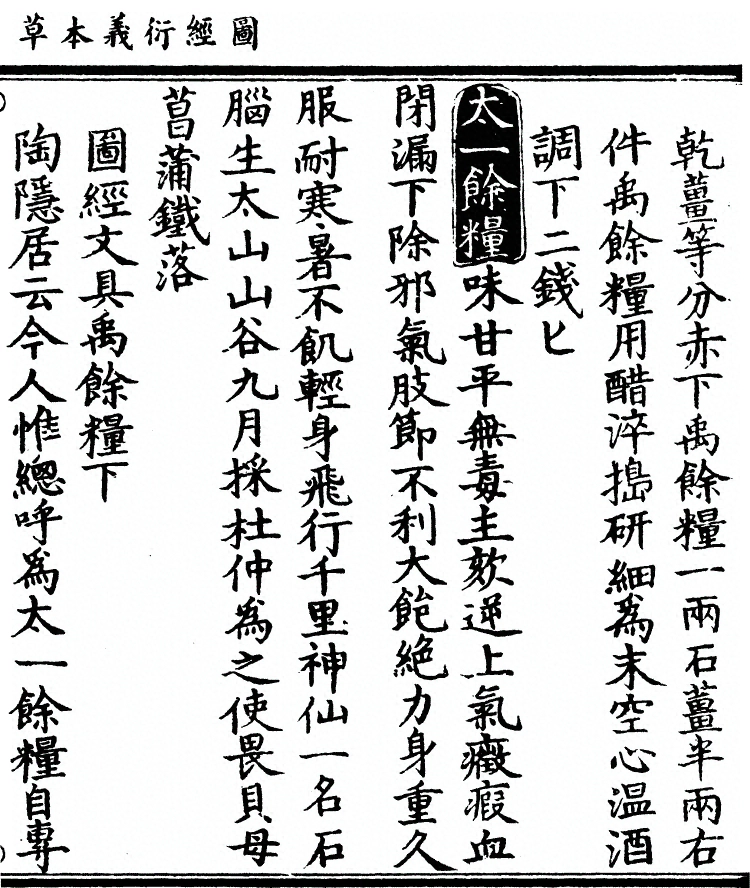 圖經衍義本草
乾薑等分赤下禹餘糧一兩石薑半兩右
件禹餘糧用醋淬搗研細爲末空心温酒
調下二錢匕
太一餘糧味甘平無毒主欬逆上氣癥瘕血
閉漏下除邪氣肢節不利大飽絶力身重久
服耐寒暑不飢輕身飛行千里神仙一名石
腦生太山山谷九月採杜仲爲之使畏貝母
菖蒲鐵落
圖經文具禹餘糧下
陶隱居云今人惟總呼爲太一餘糧自專